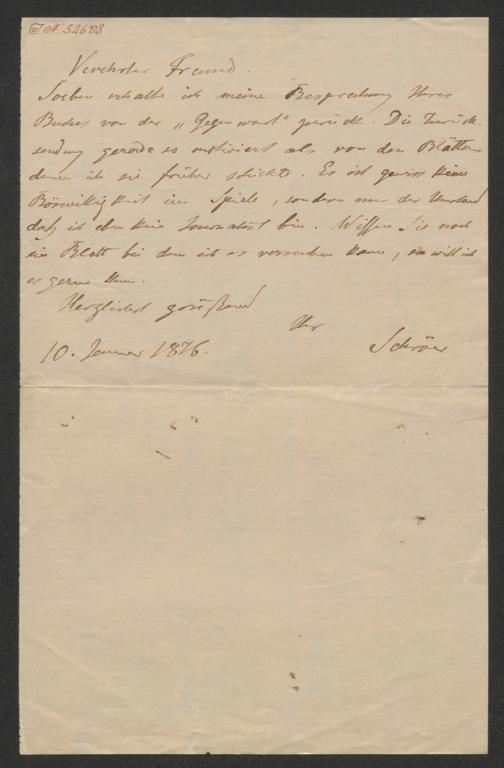 I.N. 52608
Verehrter Freund.
Soeben erhalte ich meine Besprechung Ihres
Buches von der „Gegenwart" zurück. Die Zurück-
sendung gerade so motiviert als von den Blättern
denen ich sie früher schickte. Es ist gewiss keine
Böswilligkeit im Spiele, sondern nur der Umstand
daß ich eben kein Journalist bin. Wissen Sie noch
ein Blatt bei dem ich es versuchen kann, so will ich
es gerne thun.
Herzlichst grüßend
Ihr
10. Januar 1876. Schröer